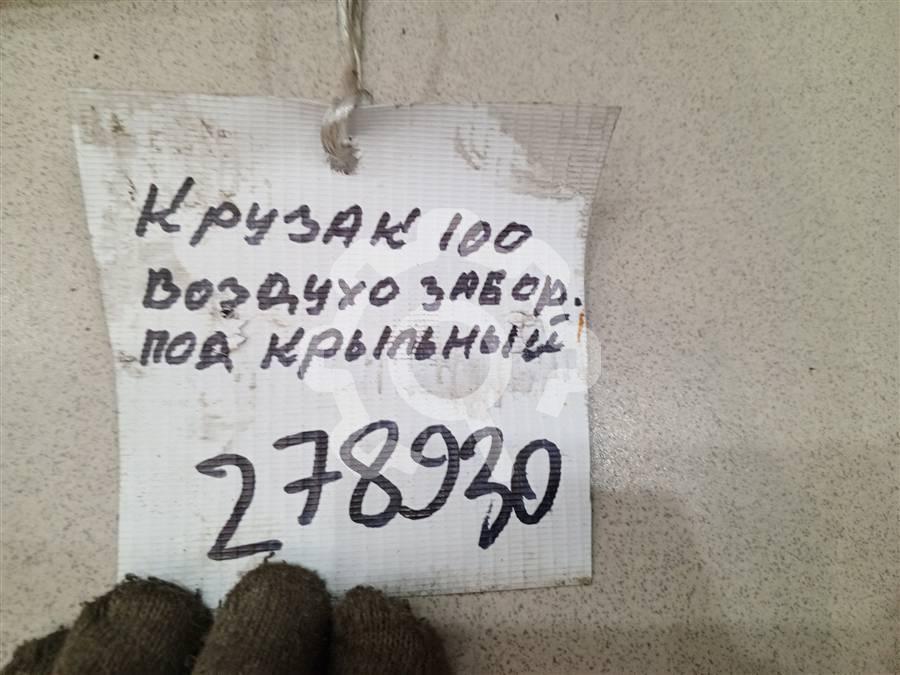 Крузак 100
воздухо забор.
под крыльный
278930